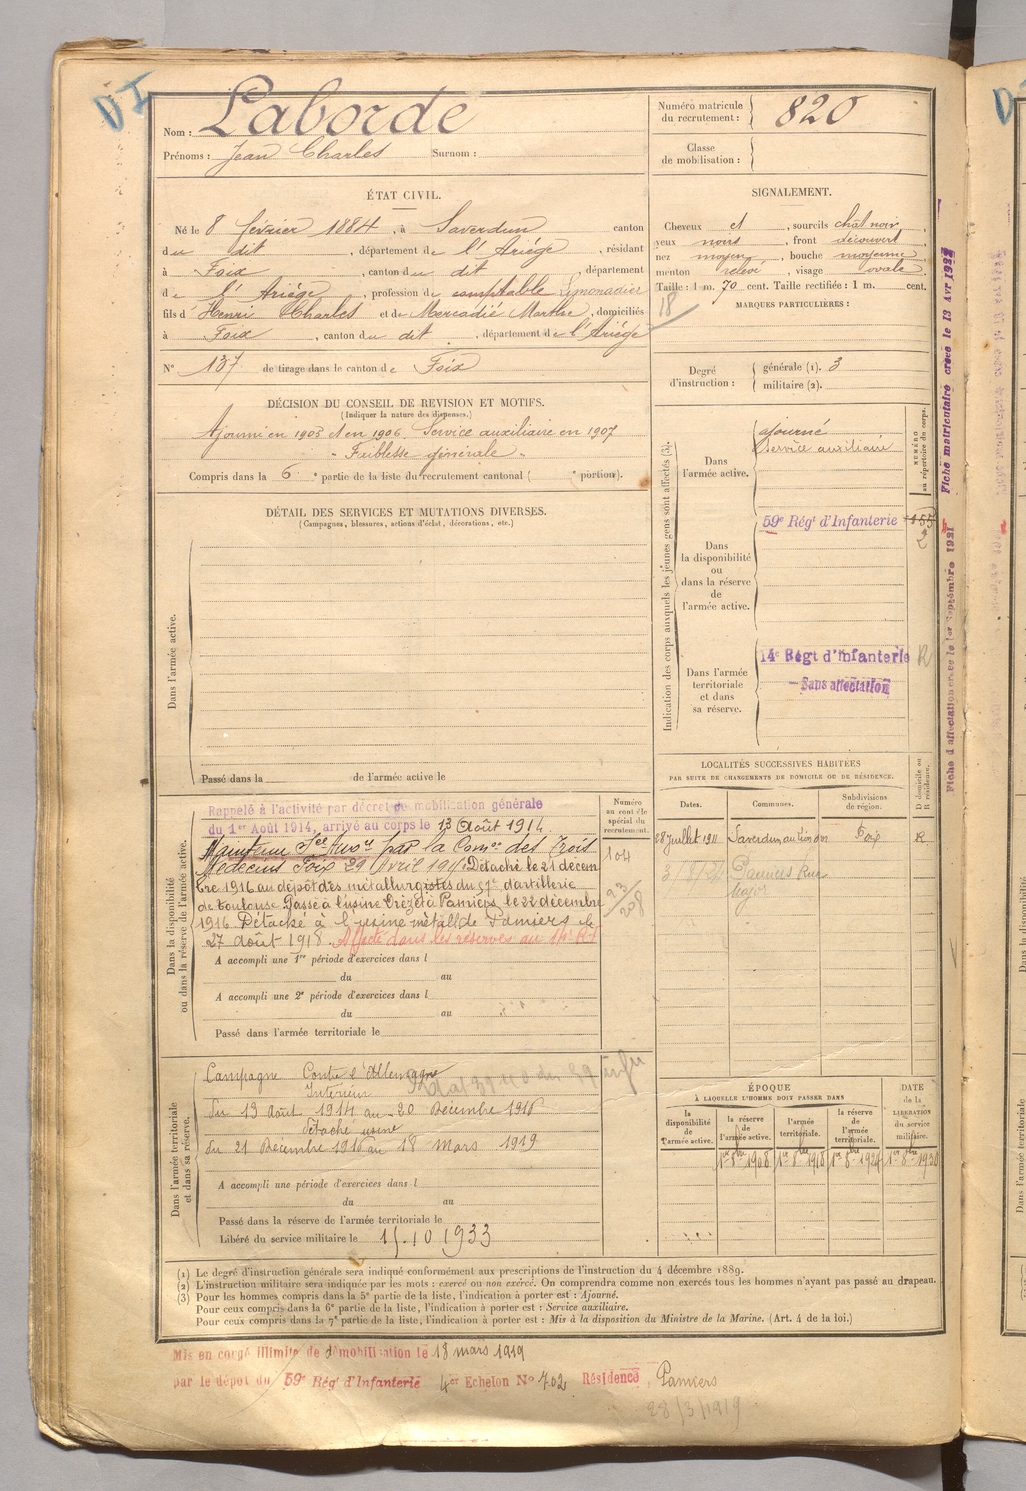 Nom : Laborde
Prénoms : Jean Charles Surnom :
Numéro matricule
du recrutement : 820
Classe
de mobilisation :
ÉTAT CIVIL.
Né le 8 février 1884, à Saverdun canton
du dit, département de l'Ariége, résidant
à Foix, canton du dit, département
de l'Ariége, profession de comptable Limonadier
fils d' Henri Charles et de Mercadié Marthe, domiciliés
à Foix, canton du dit, département de l'Ariége
N° 137 de tirage dans le canton de Foix
SIGNALEMENT.
Cheveux et, sourcils chat noir,
yeux noirs, front découvert
nez moyen, bouche moyenne
menton relevé, visage ovale
Taille : 1 m. 70 cent. Taille rectifiée : 1 m. cent.
MARQUES PARTICULIÈRES :
18
Degré
d'instruction :
générale (1). 3
militaire (2).
DÉCISION DU CONSEIL DE REVISION ET MOTIFS.
(Indiquer la nature des dispenses.)
Ajourné en 1905 et en 1906. Service auxiliaire en 1907
- Faiblesse générale -
Compris dans la 6 e partie de la liste du recrutement cantonal ( e portion).
DÉTAIL DES SERVICES ET MUTATIONS DIVERSES.
(Campagnes, blessures, actions d'éclat, décorations, etc.)
Dans l'armée active.
Passé dans la de l'armée active le
Indication des corps auxquels les jeunes gens sont affectés (3).
NUMÉRO
au répertoire du corps.
Dans
l'armée active.
ajourné
Service auxiliaire
Dans
la disponibilité
ou
dans la réserve
de
l'armée active.
59e Régt d'Infanterie
2
Dans l'armée
territoriale
et dans
sa réserve.
14e Régt d'Infanterie R
- Sans affectation
Fiche matriculaire créée le 13 Avr 1922
Fiche d'affectation créée le 1er Septembre 1921
LOCALITÉS SUCCESSIVES HABITÉES
PAR SUITE DE CHANGEMENTS DE DOMICILE OU DE RÉSIDENCE.
Dates. Communes. Subdivisions
de région.
D domicile ou
R résidence.
28 Juillet 1911 Saverdun Foix R
Pamiers Rue
Major
Dans la disponibilité
ou dans la réserve de l'armée active.
Numéro
au contrôle
spécial du
recrutement.
104
93
208
Rappelé à l'activité par décret de mobilisation générale
du 1er Août 1914, arrivé au corps le 13 Août 1914.
Maintenu Sce Auxre par la Comon des Trois
Médecins Foix 29 Avril 1915. Détaché le 21 décem
bre 1916 au dépôt des métallurgistes du 57e d'artillerie
de Toulouse. Passé à l'usine Crézet à Pamiers, le 22 décembre
1916. Détaché à l'usine métall de Pamiers le
27 août 1918. Affecté dans les réserves au 14e R.I.
A accompli une 1re période d'exercices dans l
du au
A accompli une 2e période d'exercices dans l
du au
Passé dans l'armée territoriale le
Dans l'armée territoriale
et dans sa réserve.
Campagne Contre l'Allemagne
Intérieur
du 13 Août 1914 au 20 Décembre 1916
Détaché usine
du 21 Décembre 1916 au 18 Mars 1919
A accompli une période d'exercices dans l
du au
Passé dans la réserve de l'armée territoriale le
Libéré du service militaire le 15.10 1933
ÉPOQUE
À LAQUELLE L'HOMME DOIT PASSER DANS
la
disponibilité
de
l'armée active.
la réserve
de
l'armée active.
l'armée
territoriale.
la réserve
de
l'armée
territoriale.
DATE
de la
LIBÉRATION
du service
militaire.
1er 8bre 1908 1er 8bre 1918 1er 8bre 1924 1er 8bre 1930
(1) Le degré d'instruction générale sera indiqué conformément aux prescriptions de l'instruction du 4 décembre 1889.
(2) L'instruction militaire sera indiquée par les mots : exercé ou non exercé. On comprendra comme non exercés tous les hommes n'ayant pas passé au drapeau.
(3) Pour les hommes compris dans la 5e partie de la liste, l'indication à porter est : Ajourné.
Pour ceux compris dans la 6e partie de la liste, l'indication à porter est : Service auxiliaire.
Pour ceux compris dans la 7e partie de la liste, l'indication à porter est : Mis à la disposition du Ministre de la Marine. (Art. 4 de la loi.)
Mis en congé illimité de démobilisation le 18 mars 1919
par le dépôt du 59e Régt d'Infanterie 4er Echelon N° 702 Résidence Pamiers
28/3/1919